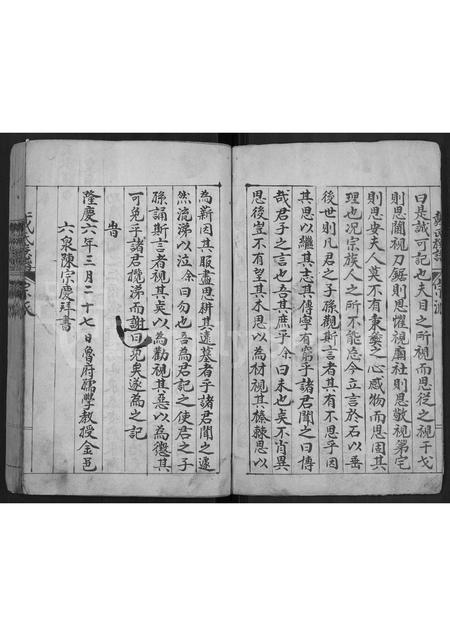 曰是誠可記也夫目之所視而思從之視干戈
則思鬭視刀鋸則思懼視廟社則思敬視第宅
則思安夫人莫不有秉彝之心感物而思固其
理也況宗族人之所不能忘今立言於石以垂
後世則凡君之子孫觀斯言者其有不思乎因
其思以繼其志其傳寧有窮乎諸君聞之曰傳
哉君子之言也吾其庶乎余曰未也矣不肖異
思後豈不有望其木思以為材視其榛棘思以
為薪因其服盡思耕其遠墓者乎諸君聞之遽
然流涕以泣余曰勿也吾為君記之使君之子
孫誦斯言者視其美以為勸視其惡以為懲其
可免乎諸君攬涕而謝曰免矣遂為之記
旹
隆慶六年三月二十七日魯府儒學教授金邑
六泉陳宗慶拜書